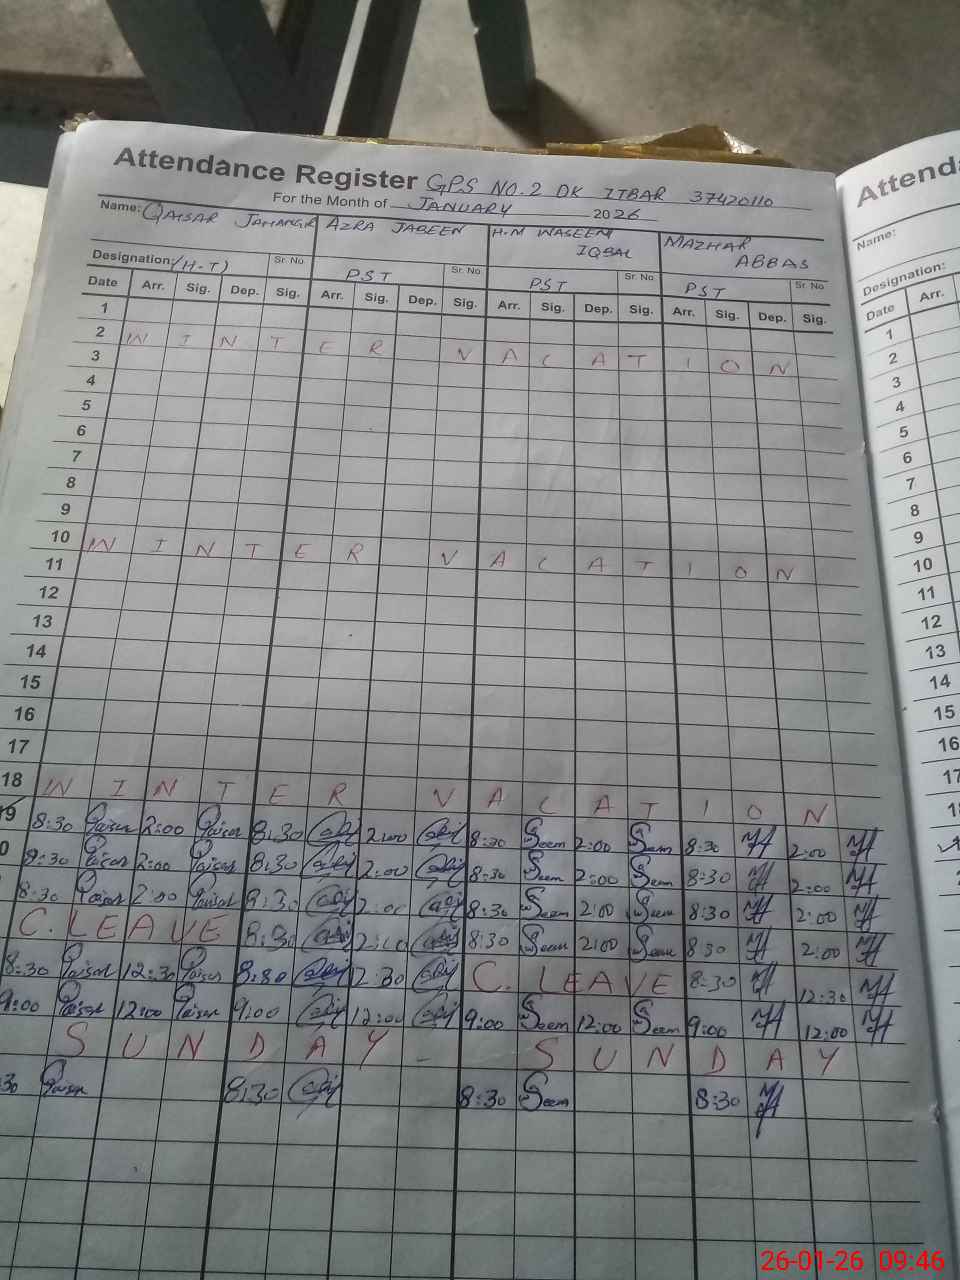 Attendance Register GPS NO.2 DK ITBAR 37420110
For the Month of JANUARY 2026
Name: QAISAR JAHANGIR AZRA JABEEN H.M WASEEM IQBAL MAZHAR ABBAS
Designation: (H-T) Sr. No PST Sr. No. PST Sr. No. PST Sr. No
Date Arr. Sig. Dep. Sig. Arr. Sig. Dep. Sig. Arr. Sig. Dep. Sig. Arr. Sig. Dep. Sig.
1
2 WINTER VACATION
3
4
5
6
7
8
9
10 WINTER VACATION
11
12
13
14
15
16
17
18 WINTER VACATION
19 8:30 Qaisar 2:00 Qaisar 8:30 2:00 8:30 Seem 2:00 Seem 8:30 2:00
0 8:30 Qaisar 2:00 Qaisar 8:30 2:00 8:30 Seem 2:00 Seem 8:30 2:00
8:30 Qaisar 2:00 Qaisar 8:30 2:00 8:30 Seem 2:00 Seem 8:30 2:00
C. LEAVE 8:30 2:00 8:30 Seem 2:00 Seem 8:30 2:00
8:30 Qaisar 12:30 Qaisar 8:30 12:30 C. LEAVE 8:30 12:30
9:00 Qaisar 12:00 Qaisar 9:00 12:00 9:00 Seem 12:00 Seem 9:00 12:00
SUNDAY - SUNDAY
30 Qaisar 8:30 8:30 Seem 8:30
Attenda
Name:
Designation:
Date Arr.
1
2
3
4
5
6
7
8
9
10
11
12
13
14
15
16
17
26-01-26 09:46